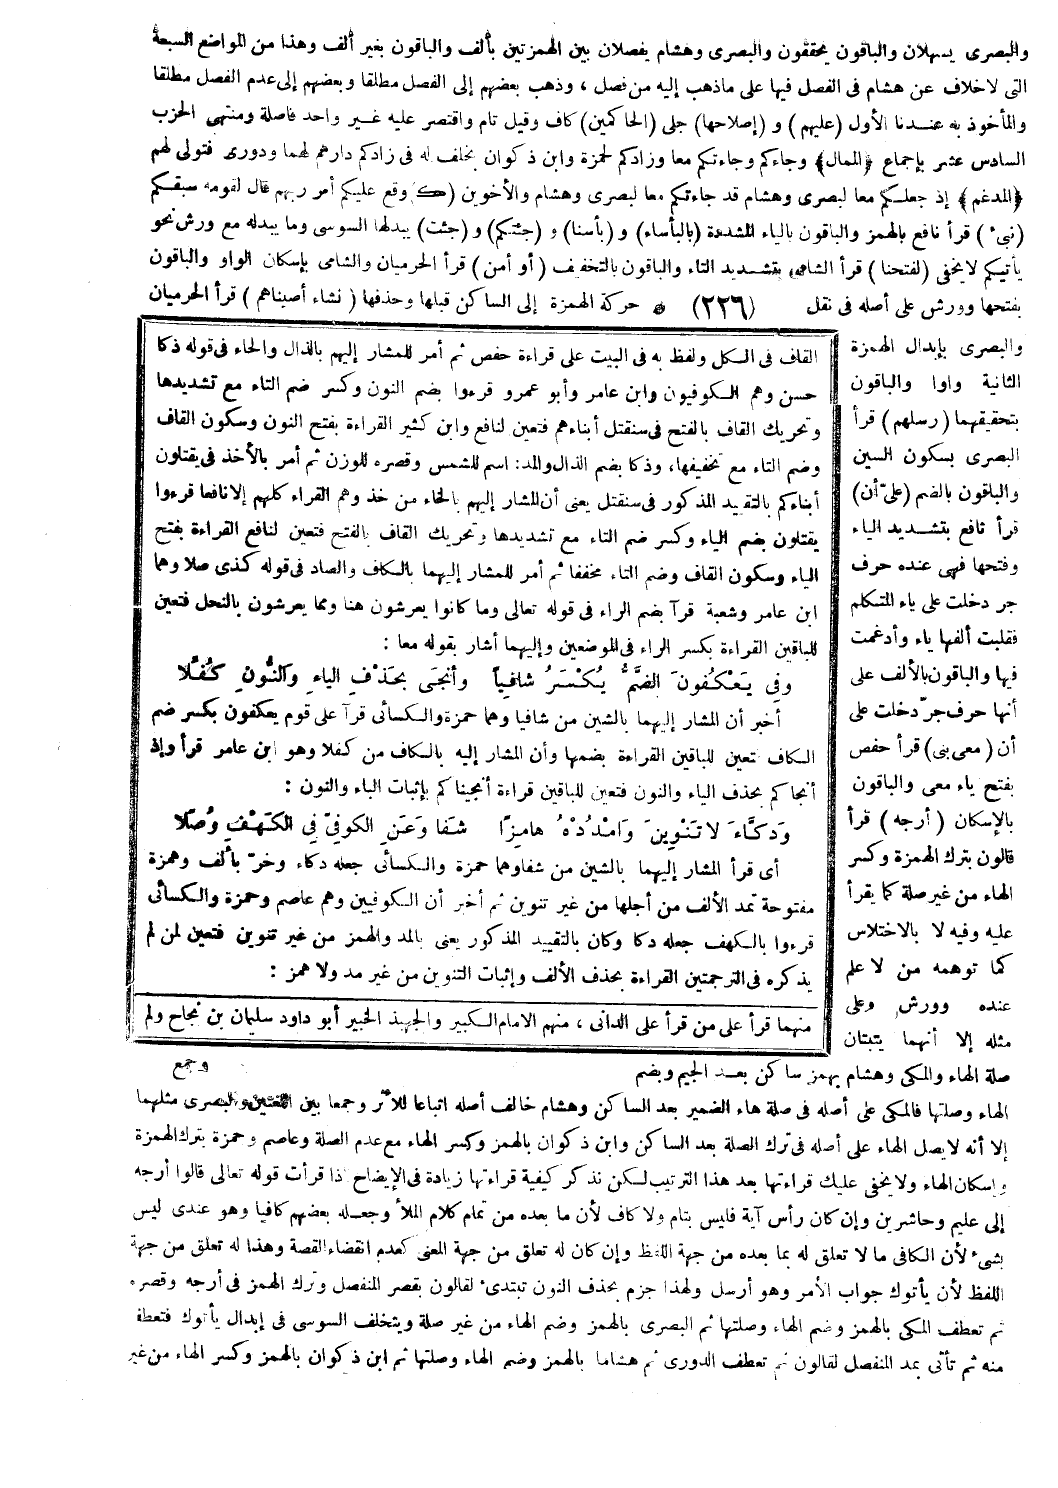 والبصرى يسهلان والباقون يحققون والبصرى وهشام يفصلان بين الهمزتين بألف والباقون بغير ألف وهذا من المواضع السبعة
التى لاخلاف عن هشام فى الفصل فيها على ماذهب إليه من فصل ، وذهب بعضهم إلى الفصل مطلقا وبعضهم إلى عدم الفصل مطلقا
والمأخوذ به عندنا الأول (عليهم) و (إصلاحها) جلى (الحاكمين) كاف وقيل تام واقتصر عليه غير واحد فاصلة ومنتهى الحزب
السادس عشر بإجماع ﴿الممال﴾ وجاءكم وجاءتكم معا وزادكم لحمزة وابن ذكوان بخلف له فى زادكم دارهم لهما ودورى فتولى لهم
﴿المدغم﴾ إذ جعلكم معا لبصرى وهشام قد جاءتكم معا لبصرى وهشام والأخوين (ك) وقع عليكم أمر ربهم قال لقومه سبقكم
(نبىء) قرأ نافع بالهمز والباقون بالياء المشددة (بالبأساء) و (بأسنا) و (جئتكم) و (جئت) يبدلها السوسى وما يبدله مع ورش نحو
يأتيكم لايخفى (لفتحنا) قرأ الشامى بتشديد التاء والباقون بالتخفيف (أو أمن) قرأ الحرميان والشامى بإسكان الواو والباقون
بفتحها وورش على أصله فى نقل (٢٢٦) حركة الهمزة إلى الساكن قبلها وحذفها (نشاء أصبناهم) قرأ الحرميان
والبصرى بإبدال الهمزة
الثانية واوا والباقون
بتحقيقهما (رسلهم) قرأ
البصرى بسكون السين
والباقون بالضم (علىّ أن)
قرأ نافع بتشديد الياء
وفتحها فهى عنده حرف
جر دخلت على ياء المتكلم
فقلبت ألفها ياء وأدغمت
فيها والباقون بالألف على
أنها حرف جرّ دخلت على
أن (معى بنى) قرأ حفص
بفتح ياء معى والباقون
بالإسكان (أرجه) قرأ
قالون بترك الهمزة وكسر
الهاء من غير صلة كما يقرأ
عليه وفيه لا بالاختلاس
كما توهمه من لا علم
عنده وورش وعلى
مثله إلا أنهما يثبتان
صلة الهاء والمكى وهشام بهمز ساكن بعد الجيم وبضم
القاف فى الكل ولفظ به فى البيت على قراءة حفص ثم أمر للمشار إليهم بالذال والحاء فى قوله ذكا
حسن وهم الكوفيون وابن عامر وأبو عمرو قرءوا بضم النون وكسر ضم التاء مع تشديدها
وتحريك القاف بالفتح فى سنقتل أبناءهم فتعين لنافع وابن كثير القراءة بفتح النون وسكون القاف
وضم التاء مع تخفيفها، وذكا بضم الذال والمد: اسم للشمس وقصره للوزن ثم أمر بالأخذ فى يقتلون
أبناءكم بالتقييد المذكور فى سنقتل يعنى أن المشار إليهم بالخاء من خذ وهم القراء كلهم إلا نافعا قرءوا
يقتلون بضم الياء وكسر ضم التاء مع تشديدها وتحريك القاف بالفتح فتعين لنافع القراءة بفتح
الياء وسكون القاف وضم التاء مخففا ثم أمر للمشار إليهما بالكاف والصاد فى قوله كذى صلا وهما
ابن عامر وشعبة قرآ بضم الراء فى قوله تعالى وما كانوا يعرشون هنا ومما يعرشون بالنحل فتعين
للباقين القراءة بكسر الراء فى الموضعين وإليهما أشار بقوله معا :
وفى يَعْكُفُونَ الضمُّ يُكْسَرُ شافياً وأنجَى بحَذْفِ الياءِ والنُّونِ كُفِّلَا
أخبر أن المشار إليهما بالشين من شافيا وهما حمزة والكسائى قرآ على قوم يعكفون بكسر ضم
الكاف فتعين للباقين القراءة بضمها وأن المشار إليه بالكاف من كفلا وهو ابن عامر قرأ وإذ
أنجاكم بحذف الياء والنون فتعين للباقين قراءة أنجيناكم بإثبات الياء والنون :
وَدَكَّاءَ لا تَنْوِينَ وَامْدُدْهُ هامِزًا شَفَا وَعَنِ الكوفىّ فى الكَهْفِ وُصِّلَا
أى قرأ المشار إليهما بالشين من شفا وهما حمزة والكسائى جعله دكاء وخرّ بألف وهمزة
مفتوحة تمد الألف من أجلها من غير تنوين ثم أخبر أن الكوفيين وهم عاصم وحمزة والكسائى
قرءوا بالكهف جعله دكا وكان بالتقييد المذكور يعنى بالمد والهمز من غير تنوين فتعين لمن لم
يذكره فى الترجمتين القراءة بحذف الألف وإثبات التنوين من غير مد ولا همز :
منهما قرأ على من قرأ على الدانى ، منهم الامام الكبير والجهبذ الخبير أبو داود سليمان بن نجاح ولم
وجمع
الهاء وصلتها فالمكى على أصله فى صلة هاء الضمير بعد الساكن وهشام خالف أصله اتباعا للأثر وجمعا بين اللغتين والبصرى مثلهما
إلا أنه لايصل الهاء على أصله فى ترك الصلة بعد الساكن وابن ذكوان بالهمز وكسر الهاء مع عدم الصلة وعاصم وحمزة بترك الهمزة
وإسكان الهاء ولايخفى عليك قراءتها بعد هذا الترتيب لكن نذكر كيفية قراءتها زيادة فى الإيضاح إذا قرأت قوله تعالى قالوا أرجه
إلى عليم وحاشرين وإن كان رأس آية فليس بتام ولا كاف لأن ما بعده من تمام كلام الملأ وجعله بعضهم كافيا وهو عندى ليس
بشىء لأن الكافى ما لا تعلق له بما بعده من جهة اللفظ وإن كان له تعلق من جهة المعنى كعدم انقضاء القصة وهذا له تعلق من جهة
اللفظ لأن يأتوك جواب الأمر وهو أرسل ولهذا جزم بحذف النون تبتدىء لقالون بقصر المنفصل وترك الهمز فى أرجه وقصره
ثم تعطف المكى بالهمز وضم الهاء وصلتها ثم البصرى بالهمز وضم الهاء من غير صلة ويتخلف السوسى فى إبدال يأتوك فتعطفه
منه ثم تأتى بمد المنفصل لقالون ثم تعطف الدورى ثم هشاما بالهمز وضم الهاء وصلتها ثم ابن ذكوان بالهمز وكسر الهاء من غير